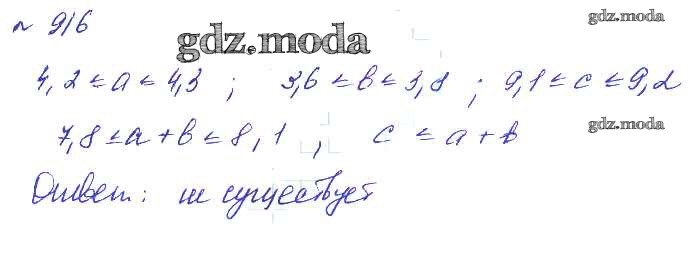 № 916
gdz.moda
gdz.moda
4,2 ≤ a ≤ 4,3 ; 3,6 ≤ b ≤ 3,8 ; 9,1 ≤ c ≤ 9,2
7,8 ≤ a + b ≤ 8,1 , c ≤ a + b
gdz.moda
Ответ: не существует